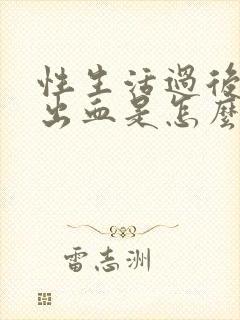 性生活過後
出血是怎麼
雷志洲